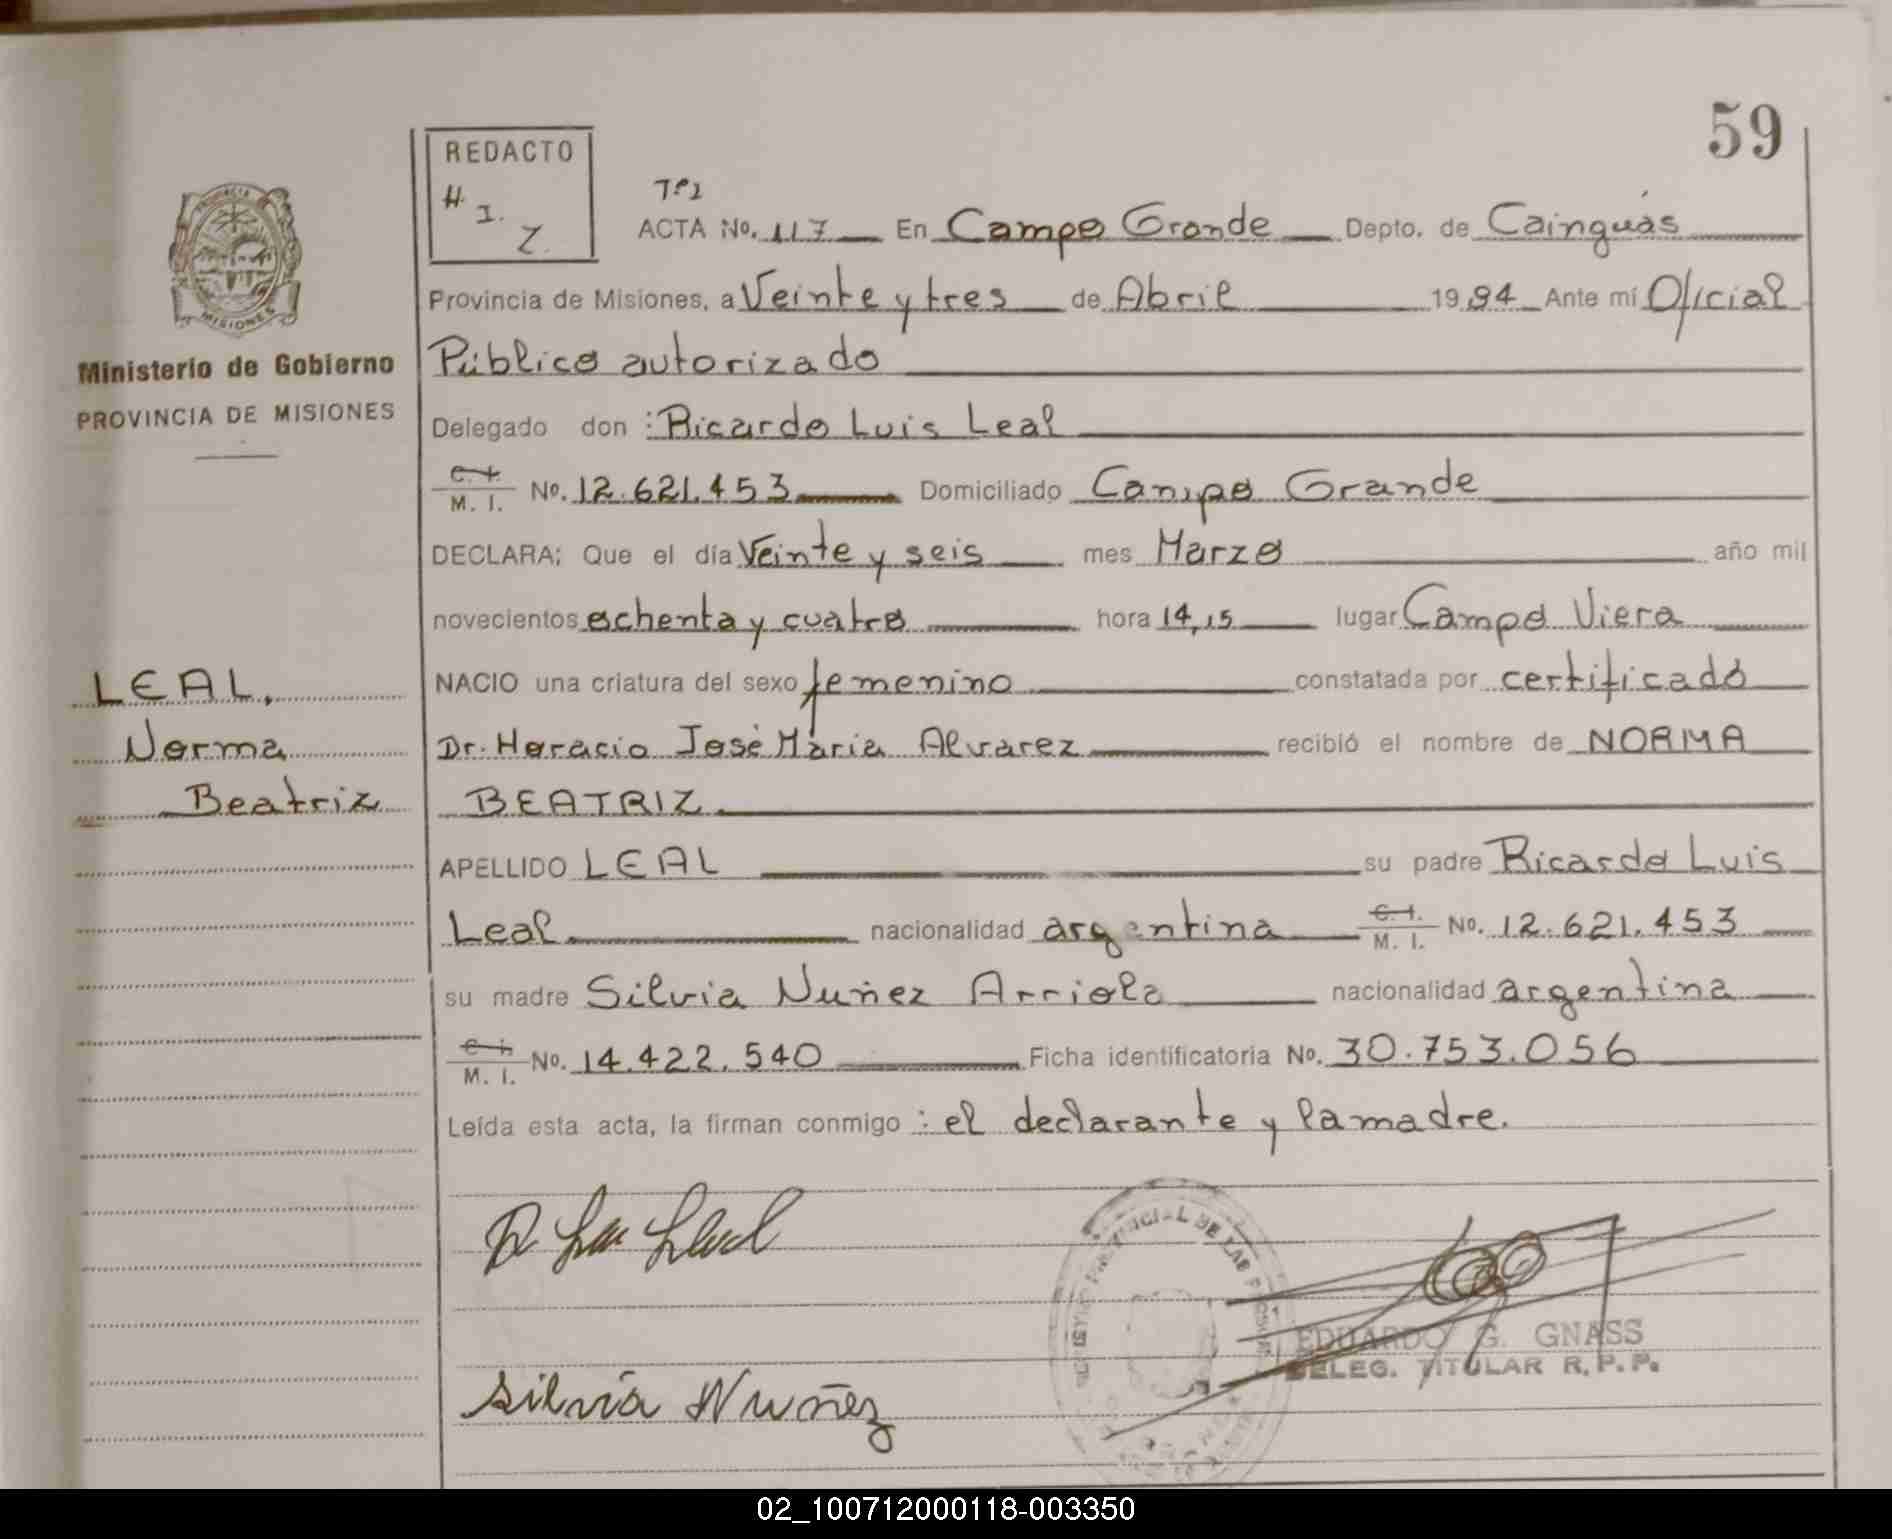 59
REDACTO
H. I. Z.
Tº1
ACTA No. 117 En Campo Grande Depto. de Cainguás
Provincia de Misiones, a Veinte y tres de Abril 1984 Ante mí Oficial
Público autorizado
Delegado don : Ricardo Luis Leal
C. I. / M. I. No. 12.621.453 Domiciliado Campo Grande
DECLARA; Que el día Veinte y seis mes Marzo año mil
novecientos ochenta y cuatro hora 14,15 lugar Campo Viera
NACIO una criatura del sexo femenino constatada por certificado
Dr. Horacio José Maria Alvarez recibió el nombre de NORMA
BEATRIZ
APELLIDO LEAL su padre Ricardo Luis
Leal nacionalidad argentina C. I. / M. I. No. 12.621.453
su madre Silvia Nuñez Arriola nacionalidad argentina
C. I. / M. I. No. 14.422.540 Ficha identificatoria No. 30.753.056
Leída esta acta, la firman conmigo : el declarante y la madre.
Silvia Nuñez
EDUARDO G. GNASS
DELEG. TITULAR R. P. P.
PROVINCIA
MISIONES
Ministerio de Gobierno
PROVINCIA DE MISIONES
LEAL,
Norma
Beatriz
02_100712000118-003350